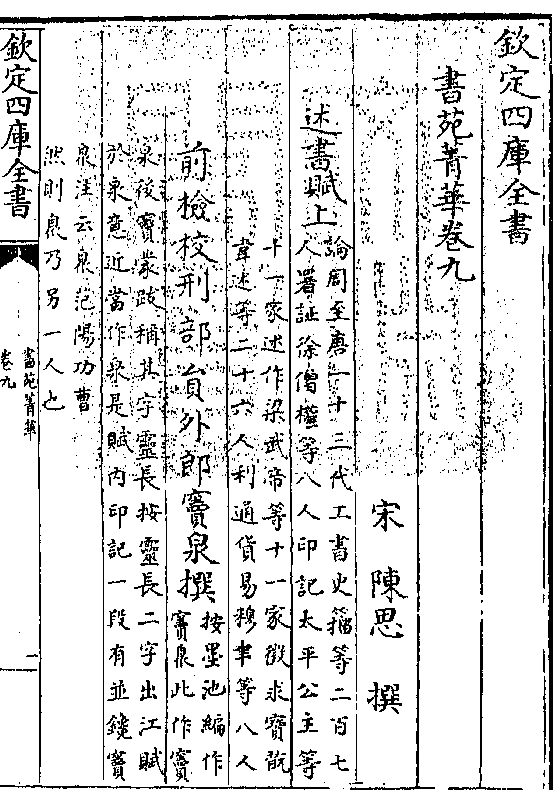 欽定四庫全書
書苑菁華卷九
宋 陳思 撰
述書賦上
論周至唐一十三代工書史籀等二百七
人署証徐僧權等八人印記太平公主等
十一家述作梁武帝等十一家徵求寶翫
韋述等二十六人利通貨易穆聿等八人
前檢校刑部員外郎竇泉撰
按墨池編作
竇臮此作竇
泉後竇蒙跋稱其字靈長按靈長二字出江賦
於泉意近當作泉是賦內印記一段有並鐫竇
泉注云泉范陽功曹
然則臮乃另一人也
欽定四庫全書
書苑菁華
卷九
一